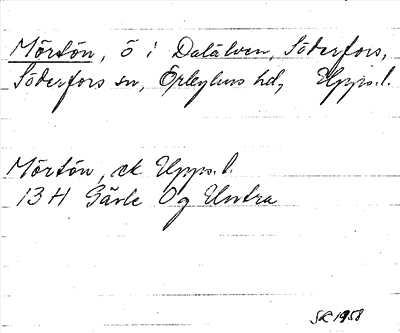 Mörtön, ö i Dalälven, Söderfors,
Söderfors sn, Örbyhus hd, Upps. l.
Mörtön, ek Upps. l.
13 H Gävle 0g Untra
SR 1958